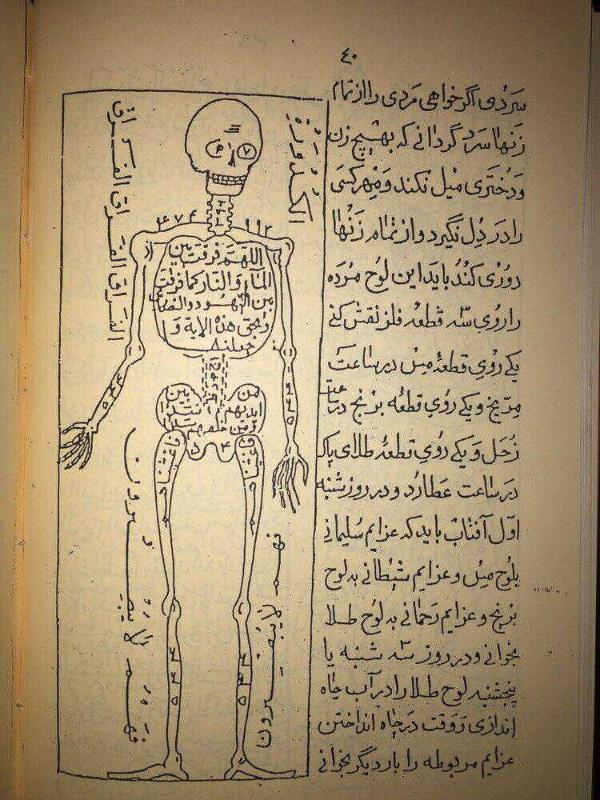 ٤٠
سردی اگر خواهی مردی را از تمام
زنها سرد گردانی که بهیچ زن
و دختری میل نکند و مهر کسی
را در دل نگیرد و از تمام زنها
دوری کند باید این لوح مرده
را روی سه قطعه فلز نقش کنی
یکی روی قطعه مس در ساعت
مریخ و یکی روی قطعه برنج در ساعت
زحل و یکی روی قطعه طلای پاک
در ساعت عطارد و در روز شنبه
اول آفتاب باید که عزایم سلیمانی
بلوح مس و عزایم شیطانی به لوح
برنج و عزایم رحمانی به لوح طلا
بخوانی و در روز سه شنبه یا
پنجشنبه لوح طلا را در آب چاه
اندازی و وقت در چاه انداختن
عزایم مربوطه را بار دیگر بخوانی
الفراق الفراق الفراق
اللهم فرقت بین
الماء والنار کما فرقت
بین الیهود والنصاری
وبحق هذه الایة و
جعلنا
من بین
ایدیهم سدا
ومن خلفهم سدا
فهم لایبصرون
فهم لایبصرون